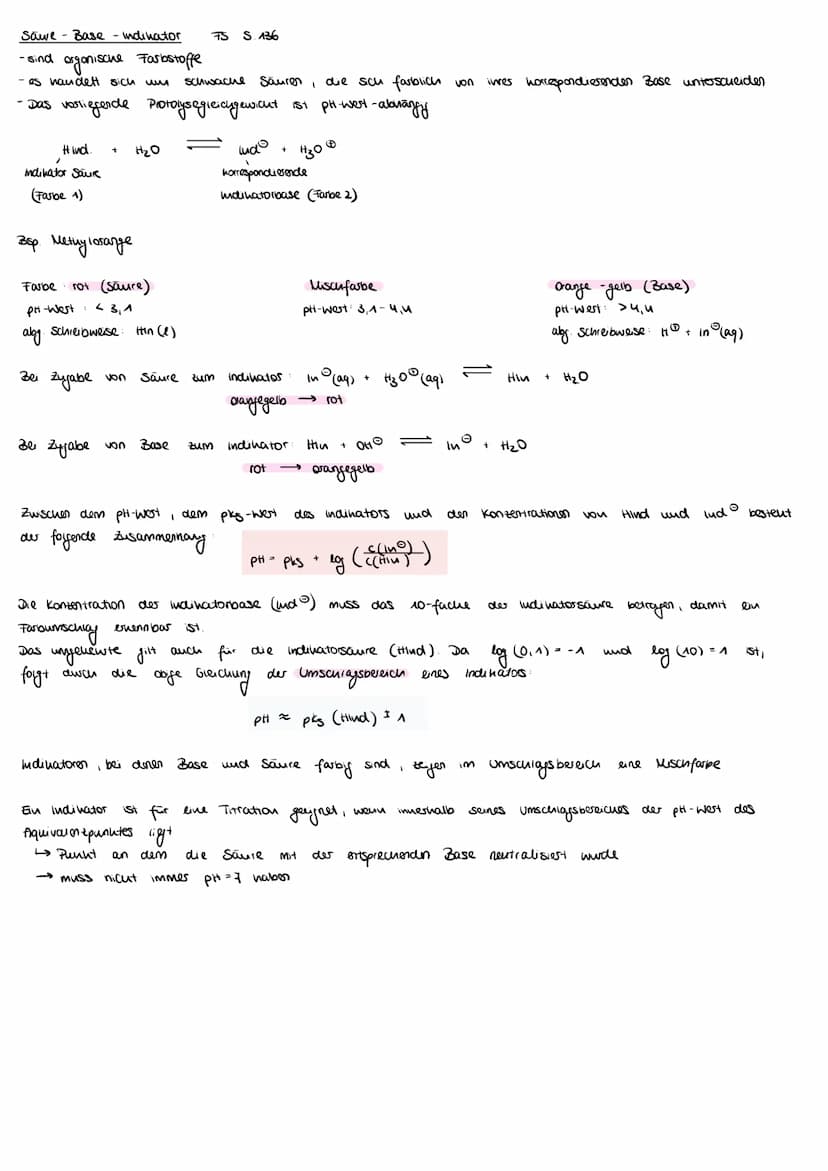 Säure - Base - Indikator FS S. 136
- sind organische Farbstoffe
- es handelt sich um schwache Säuren, die sich farblich von ihrer korrespondierenden Base unterscheiden
- Das vorliegende Protolysegleichgewicht ist pH-Wert-abhängig
HInd. + H₂O ⇌ Ind⊖ + H₃O⊕
Indikator Säure korrespondierende
(Farbe 1) Indikatorbase (Farbe 2)
Bsp Methylorange
Farbe: rot (Säure) Mischfarbe orange-gelb (Base)
pH-Wert: < 3,1 pH-Wert: 3,1 - 4,4 pH-Wert: > 4,4
abg. Schreibweise: HIn (l) abg. Schreibweise: H⊕ + In⊖(aq)
Bei Zugabe von Säure zum Indikator: In⊖(aq) + H₃O⊕(aq) ⇌ HIn + H₂O
orangegelb → rot
Bei Zugabe von Base zum Indikator: HIn + OH⊖ ⇌ In⊖ + H₂O
rot → orangegelb
Zwischen dem pH-Wert, dem pks-Wert des Indikators und den Konzentrationen von HInd und Ind⊖ besteht
der folgende Zusammenhang:
pH = pks + log (c(In⊖)/c(HIn))
Die Konzentration der Indikatorbase (Ind⊖) muss das 10-fache der Indikatorsäure betragen, damit ein
Farbumschlag erkennbar ist.
Das umgekehrte gilt auch für die Indikatorsäure (HInd). Da log (0,1) = -1 und log (10) = 1 ist,
folgt durch die obige Gleichung der Umschlagsbereich eines Indikators:
pH ≈ pks (HInd) ± 1
Indikatoren, bei denen Base und Säure farbig sind, zeigen im Umschlagsbereich eine Mischfarbe
Ein Indikator ist für eine Titration geeignet, wenn innerhalb seines Umschlagsbereiches der pH-Wert des
Äquivalentpunktes liegt
↳ Punkt an dem die Säure mit der entsprechenden Base neutralisiert wurde
→ muss nicht immer pH = 7 haben